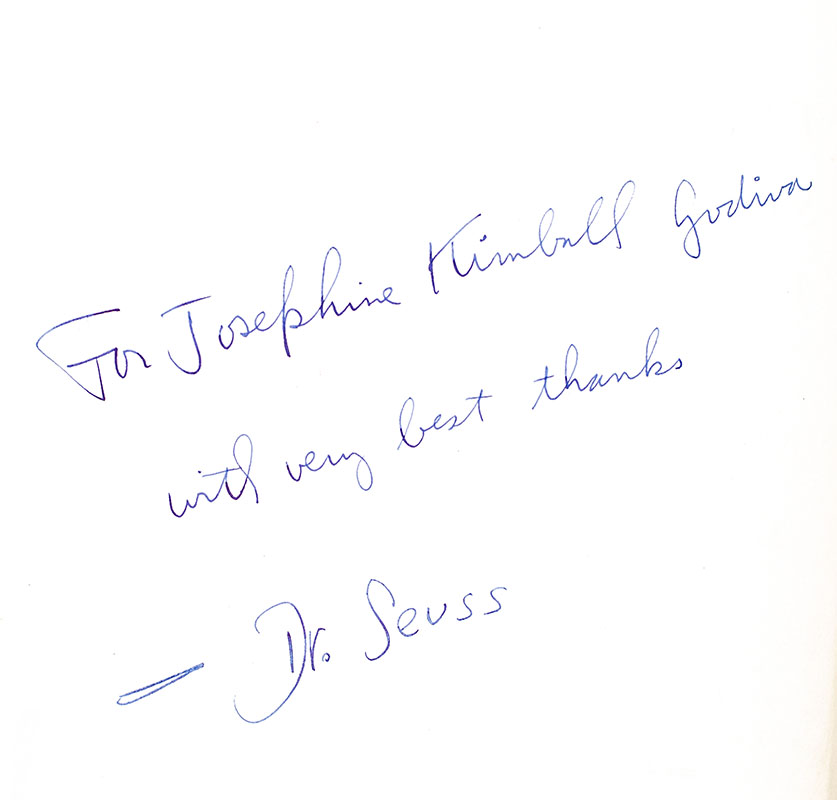 For Josephine Kimball Godiva
with very best thanks
— Dr. Seuss